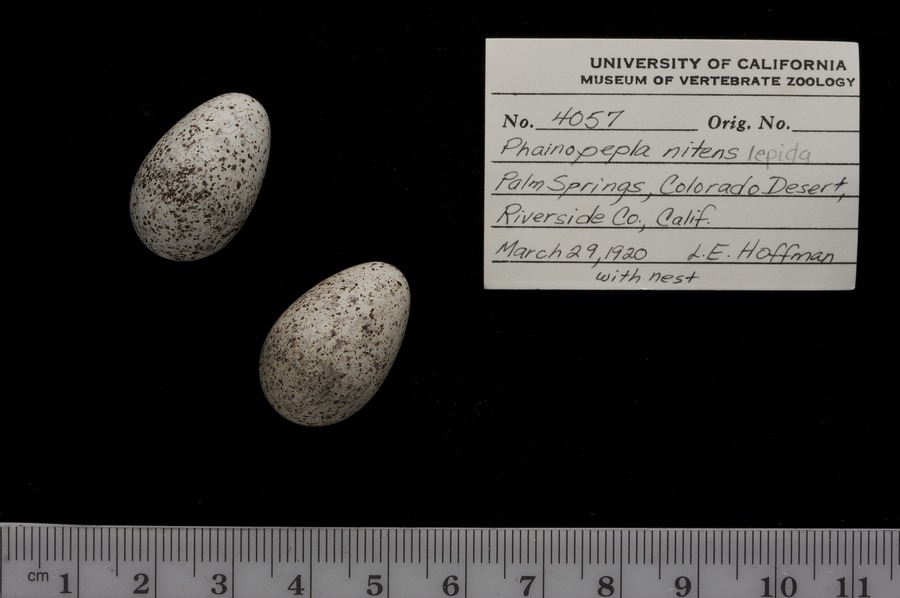 UNIVERSITY OF CALIFORNIA
MUSEUM OF VERTEBRATE ZOOLOGY
No. 4057 Orig. No.
Phainopepla nitens lepida
Palm Springs, Colorado Desert,
Riverside Co., Calif.
March 29, 1920 L.E. Hoffman
with nest
cm 1 2 3 4 5 6 7 8 9 10 11